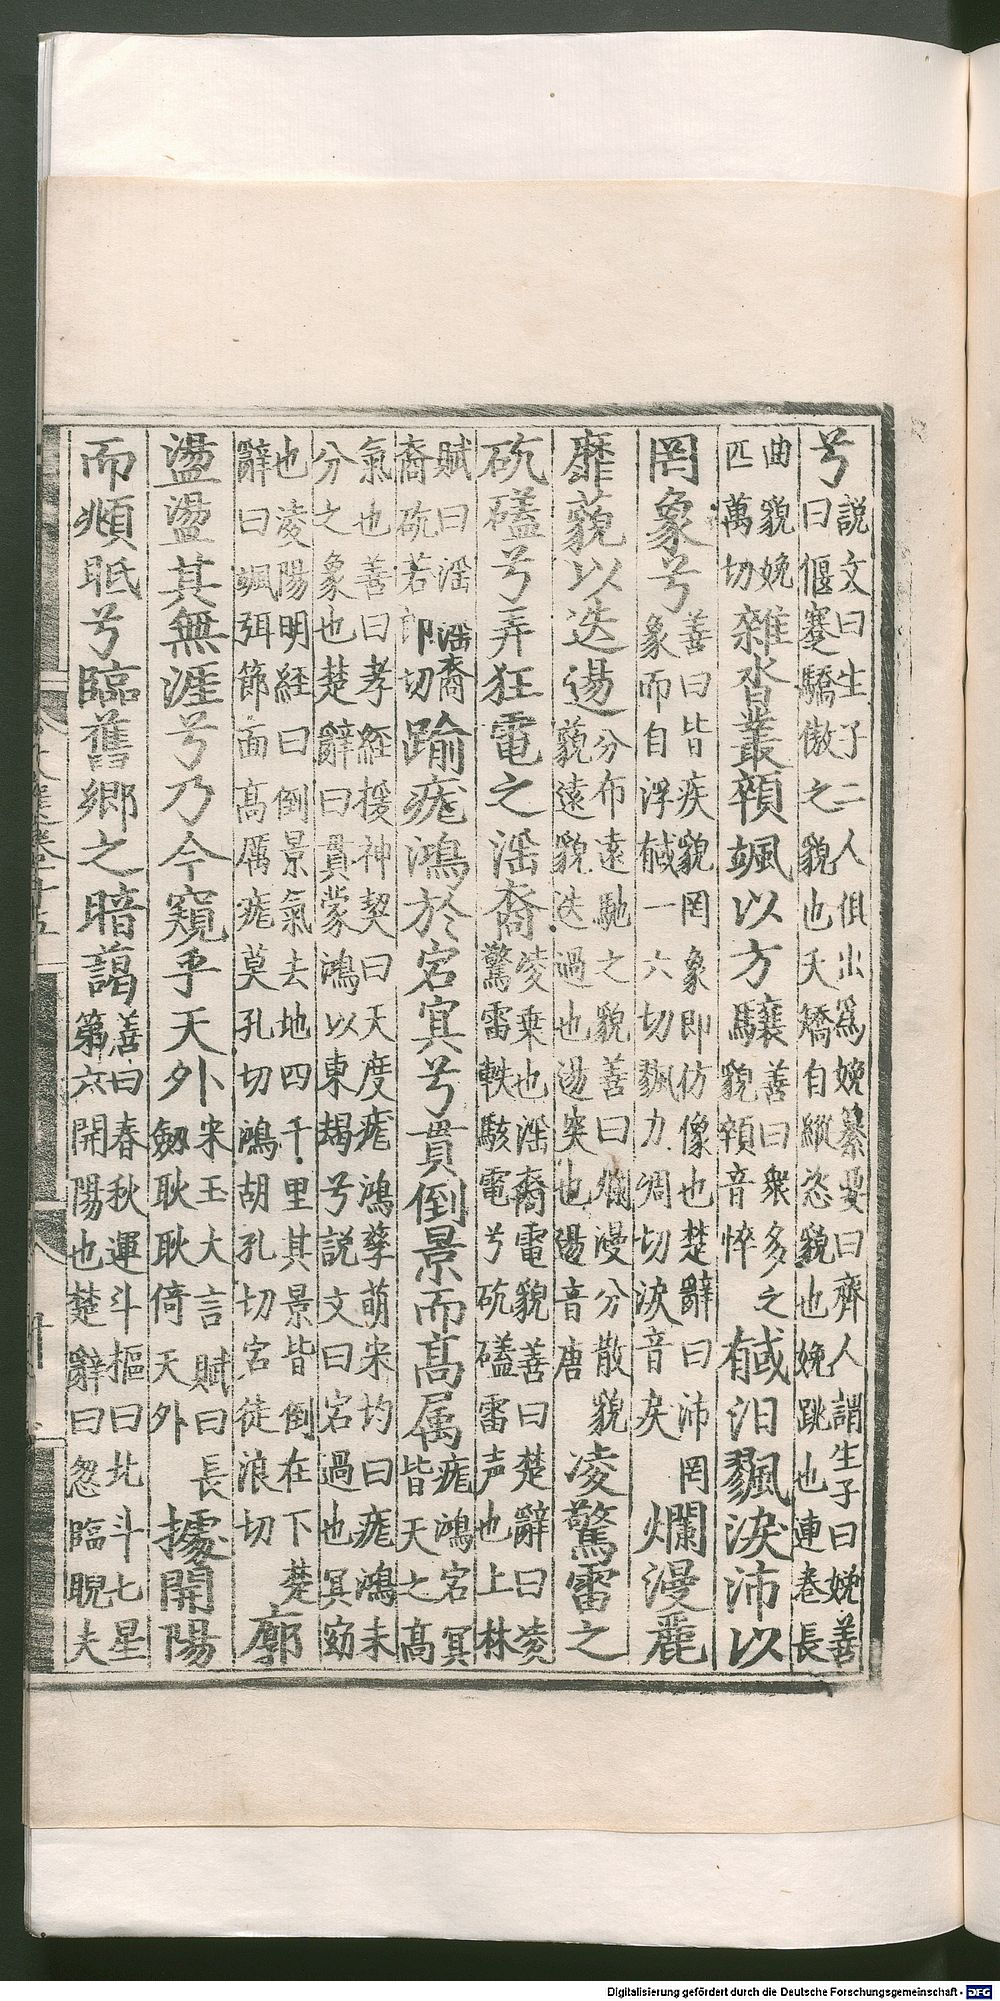 兮說文曰生子二人俱出爲娩纂要曰齊人謂生子曰娩善曰偃蹇驕傲之貌也夭矯自縱恣貌也娩跳也連卷長
曲貌娩匹萬切雜沓叢顇颯以方驤善曰衆多之貌顇音悴戫汨飂淚沛以
罔象兮善曰皆疾貌罔象即仿像也楚辭曰沛罔象而自浮戫一六切飂力凋切淚音戾爛漫麗
靡藐以迭逿分布遠馳之貌善曰爛漫分散貌藐遠貌迭過也逿突也逿音唐凌驚雷之
砊礚兮弄狂電之淫裔凌乗也淫裔電貌善曰楚辭曰凌驚雷軼駭電兮砊礚雷声也上林
賦曰淫淫裔裔砊若郎切踰痝鴻於宕冥兮貫倒景而高厲痝鴻宕冥皆天之高
氣也善曰孝經援神契曰天度痝鴻孳萌宋均曰痝鴻未分之象也楚辭曰貫蒙鴻以東朅兮說文曰宕過也冥窈
也凌陽明経曰倒景氣去地四千里其景皆倒在下楚辭曰颯弭節而高厲痝莫孔切鴻胡孔切宕徒浪切廓
盪盪其無涯兮乃今窺乎天外宋玉大言賦曰長劔耿耿倚天外據開陽
而頫眡兮臨舊鄉之暗藹善曰春秋運斗樞曰北斗七星第六開陽也楚辭曰忽臨睨夫
Digitalisierung gefördert durch die Deutsche Forschungsgemeinschaft - DFG